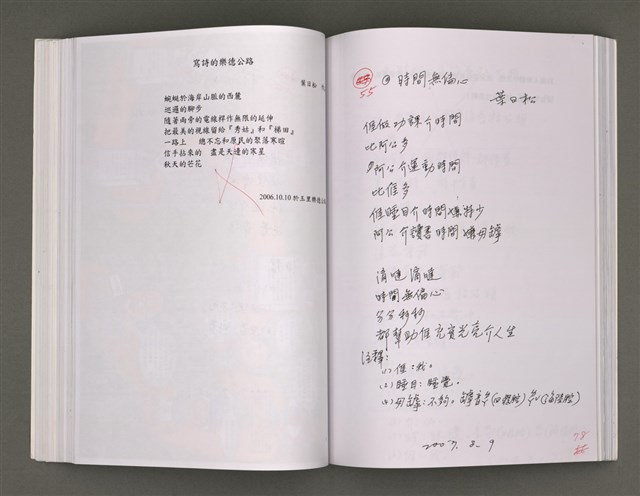 寫詩的樂德公路
葉日松
蜿蜒於海岸山脈的西麓
巡邏的腳步
隨著兩旁的電線桿作無限的延伸
把最美的視線留給『秀姑』和『梯田』
一路上 總不忘和原民的聚落寒喧
信手拈來的 盡是天邊的寒星
秋天的芒花
2006.10.10於玉里樂德
55
時間無偏心
葉日松
𠊎做功課介時間
比阿公多
阿公介運動時間
比𠊎多
𠊎睡目介時間嫌忒少
阿公介讀書時間嫌毋罅
滴噠滴噠
時間無偏心
分分秒秒
都幫助𠊎充實光亮介人生
註釋：
(1)𠊎：我。
(2)睡目：睡覺。
(3)毋罅：不夠。
2007.2.9
78